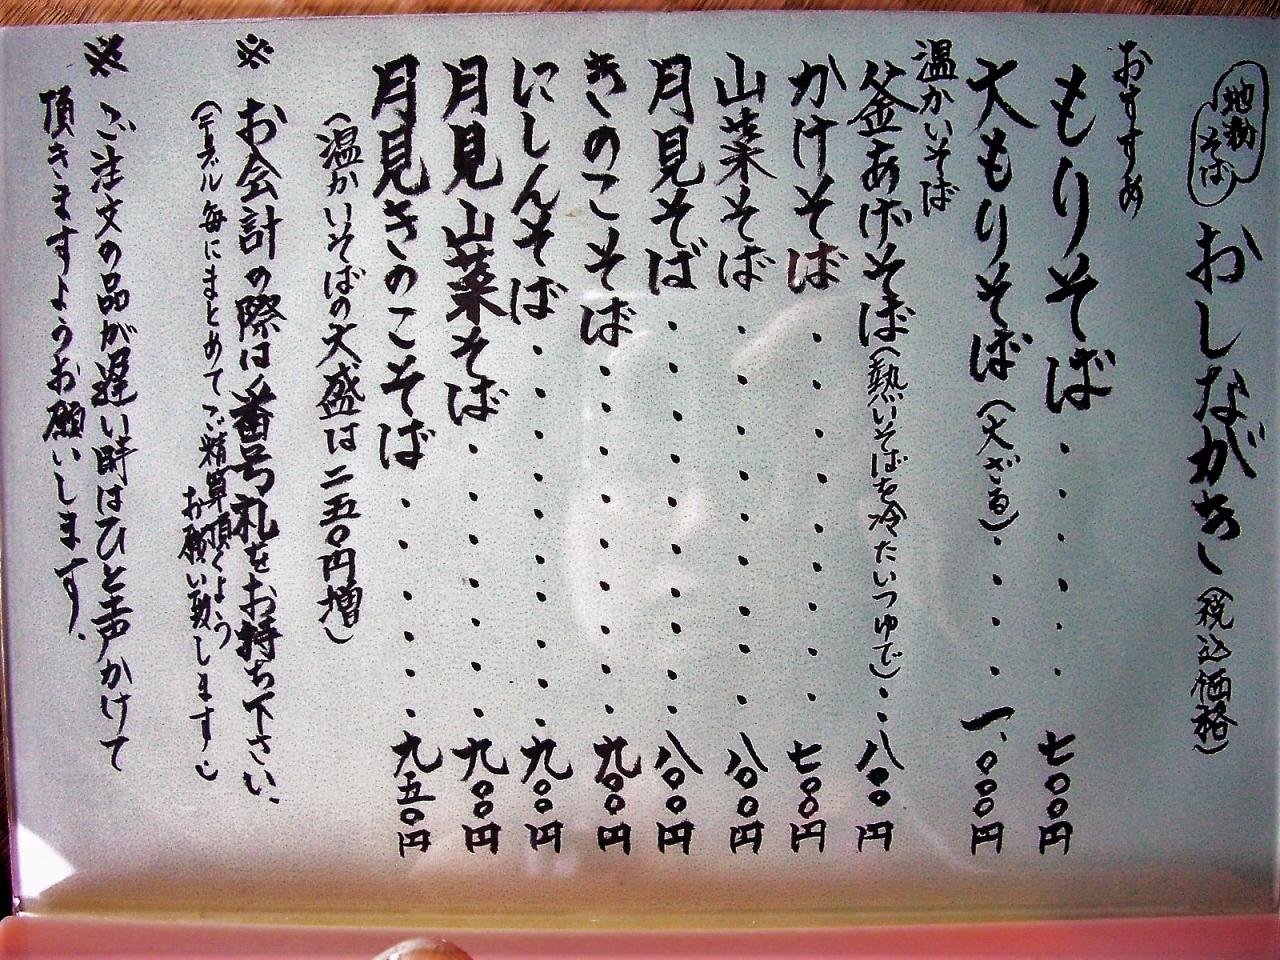 地粉
そば
おしながき（税込価格）
おすすめ
もりそば・・・・・・七〇〇円
大もりそば（大ざる）・・・・一、〇〇〇円
温かいそば
釜あげそば（熱いそばを冷たいつゆで）・・八〇〇円
かけそば・・・・・・・・七〇〇円
山菜そば・・・・・・・・・八〇〇円
月見そば・・・・・・・・・八〇〇円
きのこそば・・・・・・・・九〇〇円
にしんそば・・・・・・・・九〇〇円
月見山菜そば・・・・・・・九〇〇円
月見きのこそば・・・・・・九五〇円
（温かいそばの大盛は二五〇円増）
※ お会計の際は番号札をお持ち下さい、
（テーブル毎にまとめてご精算頂くよう
お願い致します）
※ ご注文の品が遅い時はひと声かけて
頂きますようお願いします、